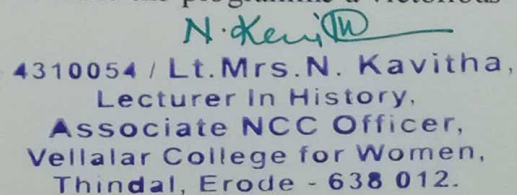 the programme a victorious
N. Kavitha
4310054 / Lt.Mrs.N. Kavitha,
Lecturer in History,
Associate NCC Officer,
Vellalar College for Women,
Thindal, Erode - 638 012.